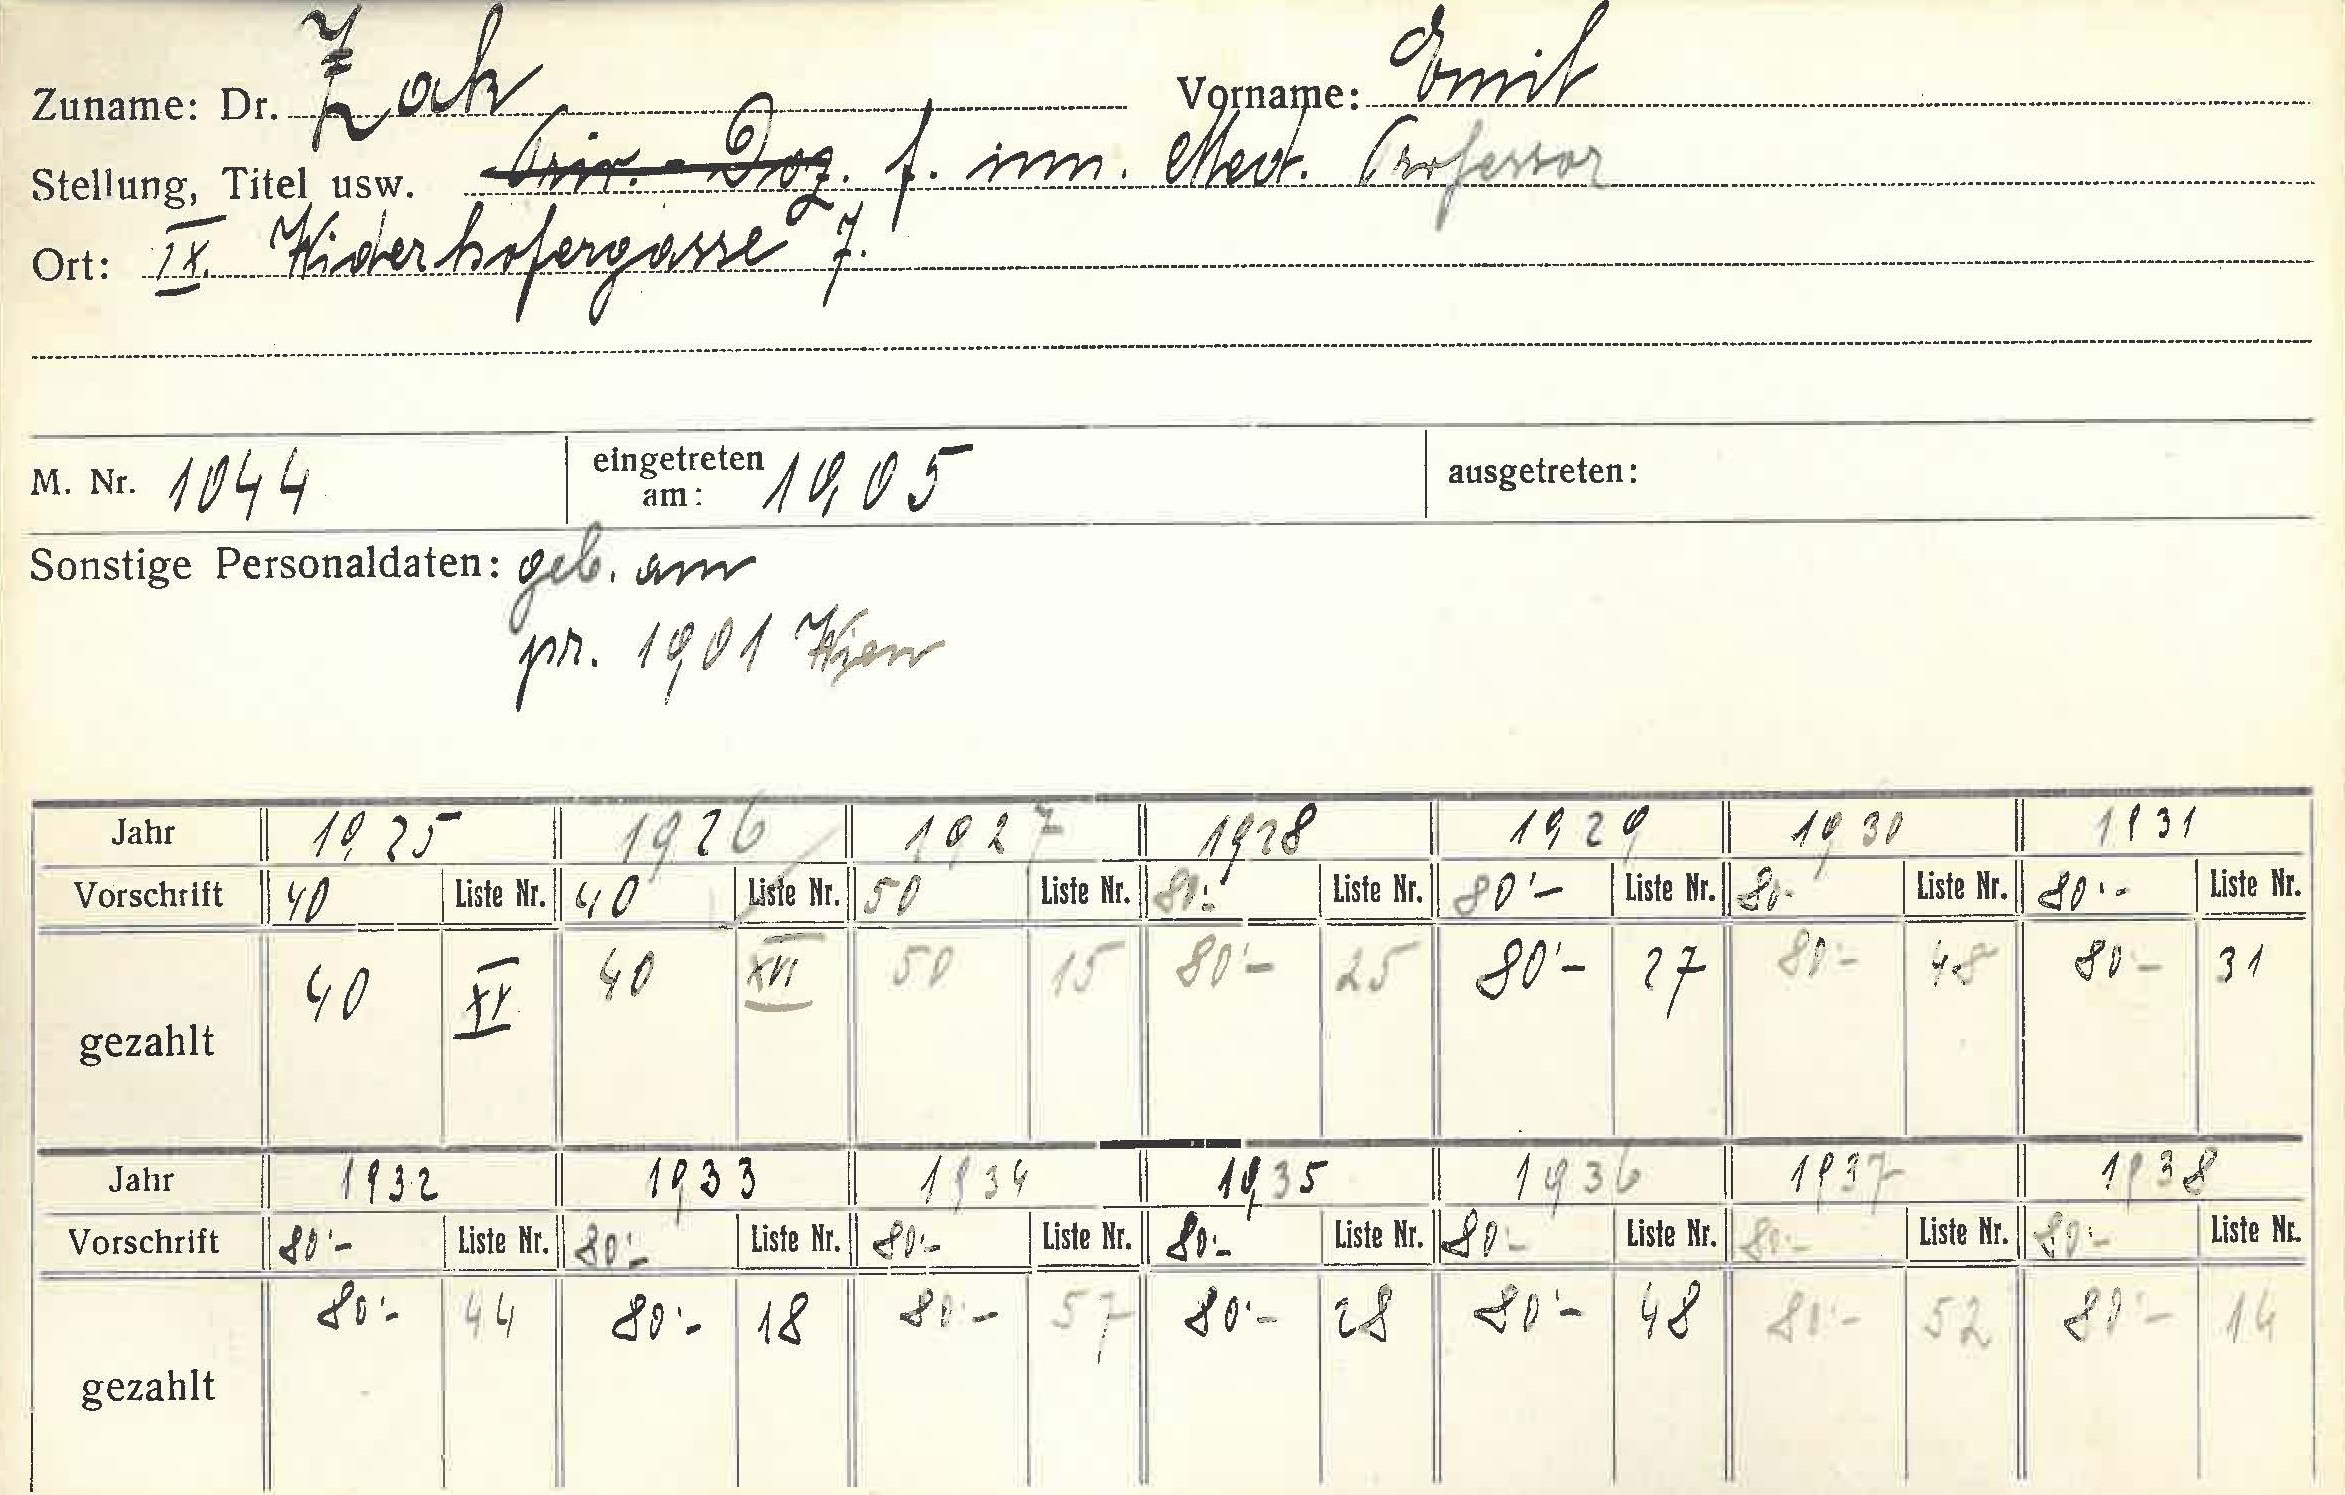 Zuname: Dr. Zak Vorname: Emil
Stellung, Titel usw. Priv.-Doz. f. inn. Med. Professor
Ort: IX. Widerhofergasse 7.
M. Nr. 1044 eingetreten am: 1905 ausgetreten:
Sonstige Personaldaten: geb. am
pr. 1901 Wien
Jahr 1925 1926 1927 1928 1929 1930 1931
Vorschrift 40 Liste Nr. 40 Liste Nr. 50 Liste Nr. 80'- Liste Nr. 80'- Liste Nr. 80- Liste Nr. 80'- Liste Nr.
gezahlt 40 XV 40 XVI 50 15 80'- 25 80'- 27 80'- 48 80'- 31
Jahr 1932 1933 1934 1935 1936 1937 1938
Vorschrift 80'- Liste Nr. 80'- Liste Nr. 80'- Liste Nr. 80'- Liste Nr. 80'- Liste Nr. 80'- Liste Nr. 80'- Liste Nr.
gezahlt 80'- 44 80'- 18 80'- 57 80'- 28 80'- 48 80'- 52 80'- 14